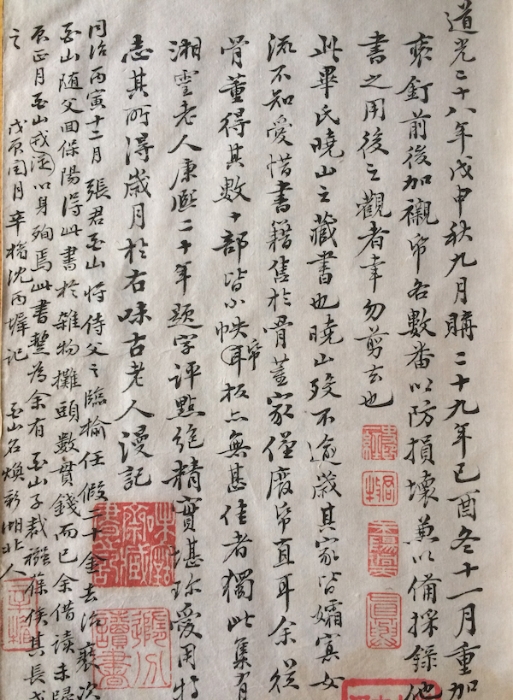 道光二十八年戊申秋九月購二十九年己酉冬十一月重加
裝釘前後加襯帋各數番以防損壞兼以備採錄他
書之用後之觀者幸勿剪去也
此畢氏曉山之藏書也曉山歿不逾歲其家皆孀寡女
流不知愛惜書籍售於骨董家僅廢帋直耳余從
骨董得其數十部皆小帙帋板亦無甚佳者獨此集有
湘雲老人康熙二十年題字評點絕精實堪珍愛用特
志其所得歲月於右味古老人漫記
同治丙寅十二月張君玉山將侍父之臨榆任假二十金去後襄次
玉山隨父回保陽得此書於雜物攤頭數貫錢而已余借讀未歸
辰正月玉山以身殉焉此書暫為余有玉山子裁襤褓俟其長成
之 戊辰閏月辛楣沈丙墀記 玉山石煥彩湖北人